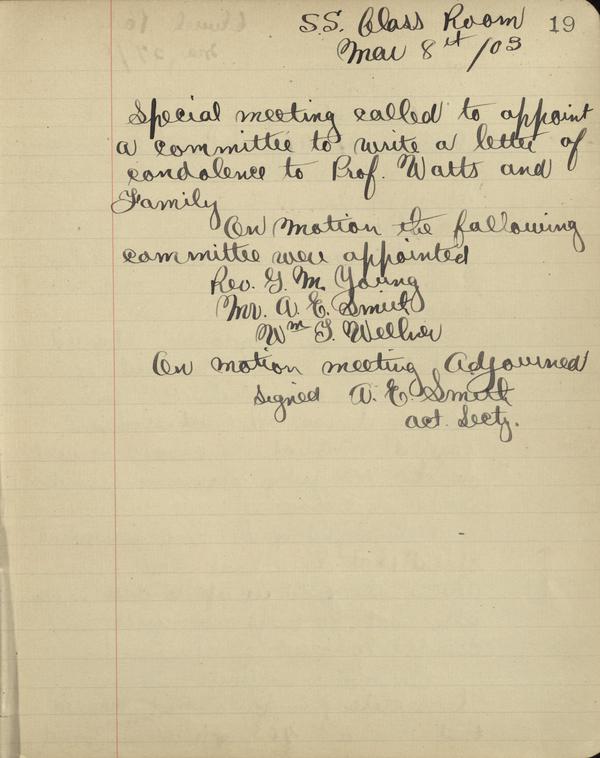 S.S. Class Room 19
Mar 8th /03
Special meeting called to appoint
a committee to write a letter of
condolence to Prof. Watts and
Family
On Motion the following
committee were appointed
Rev. G. M. Young
Mr. A. E. Smith
Wm J.
On motion meeting Adjourned
Signed A. E. Smith
act. Secty.